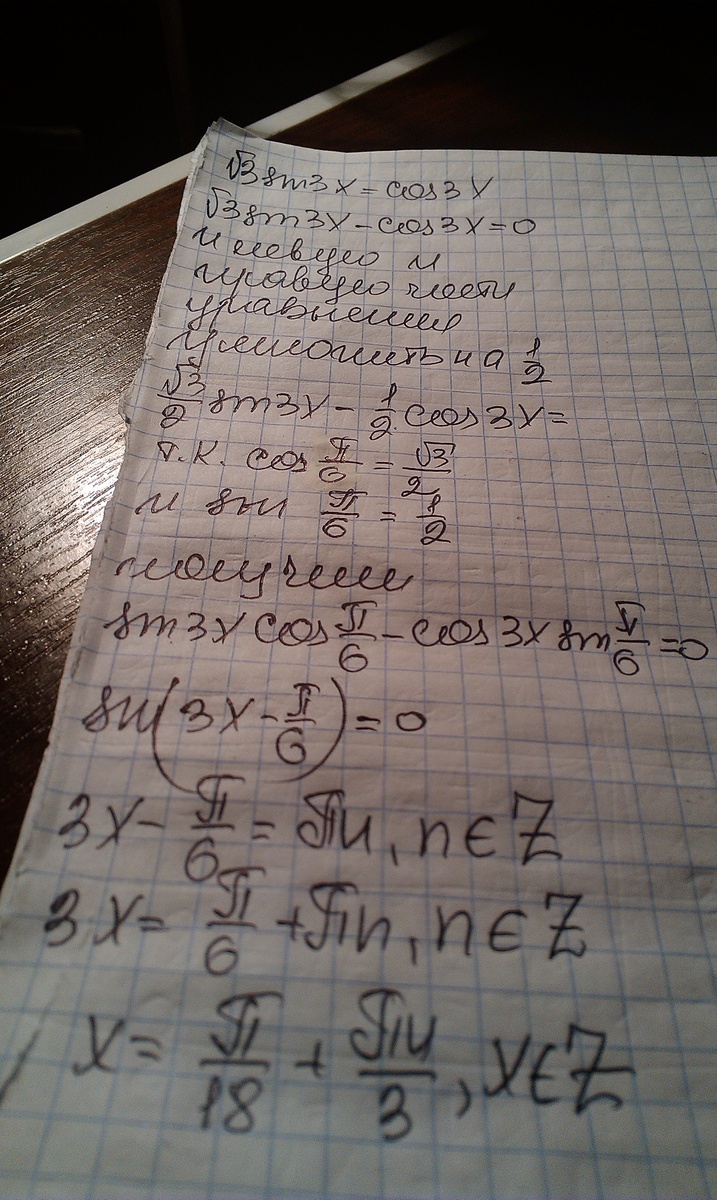 √3 sin3x = cos3x
√3 sin3x - cos3x = 0
и левую и
правую части
уравнения
умножить на 1/2
√3/2 sin3x - 1/2 cos3x =
т.к. cos π/6 = √3/2
и sin π/6 = 1/2
получим
sin3x cos π/6 - cos3x sin π/6 = 0
sin(3x - π/6) = 0
3x - π/6 = πn, n ∈ Z
3x = π/6 + πn, n ∈ Z
x = π/18 + πn/3, x ∈ Z